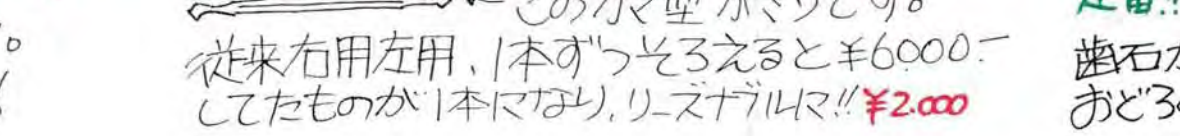 このカマ型がミソです。
従来右用左用、1本ずつそろえると¥6000-
してたものが1本になり、リーズナブルに!!¥2.000
歯石
おどろ